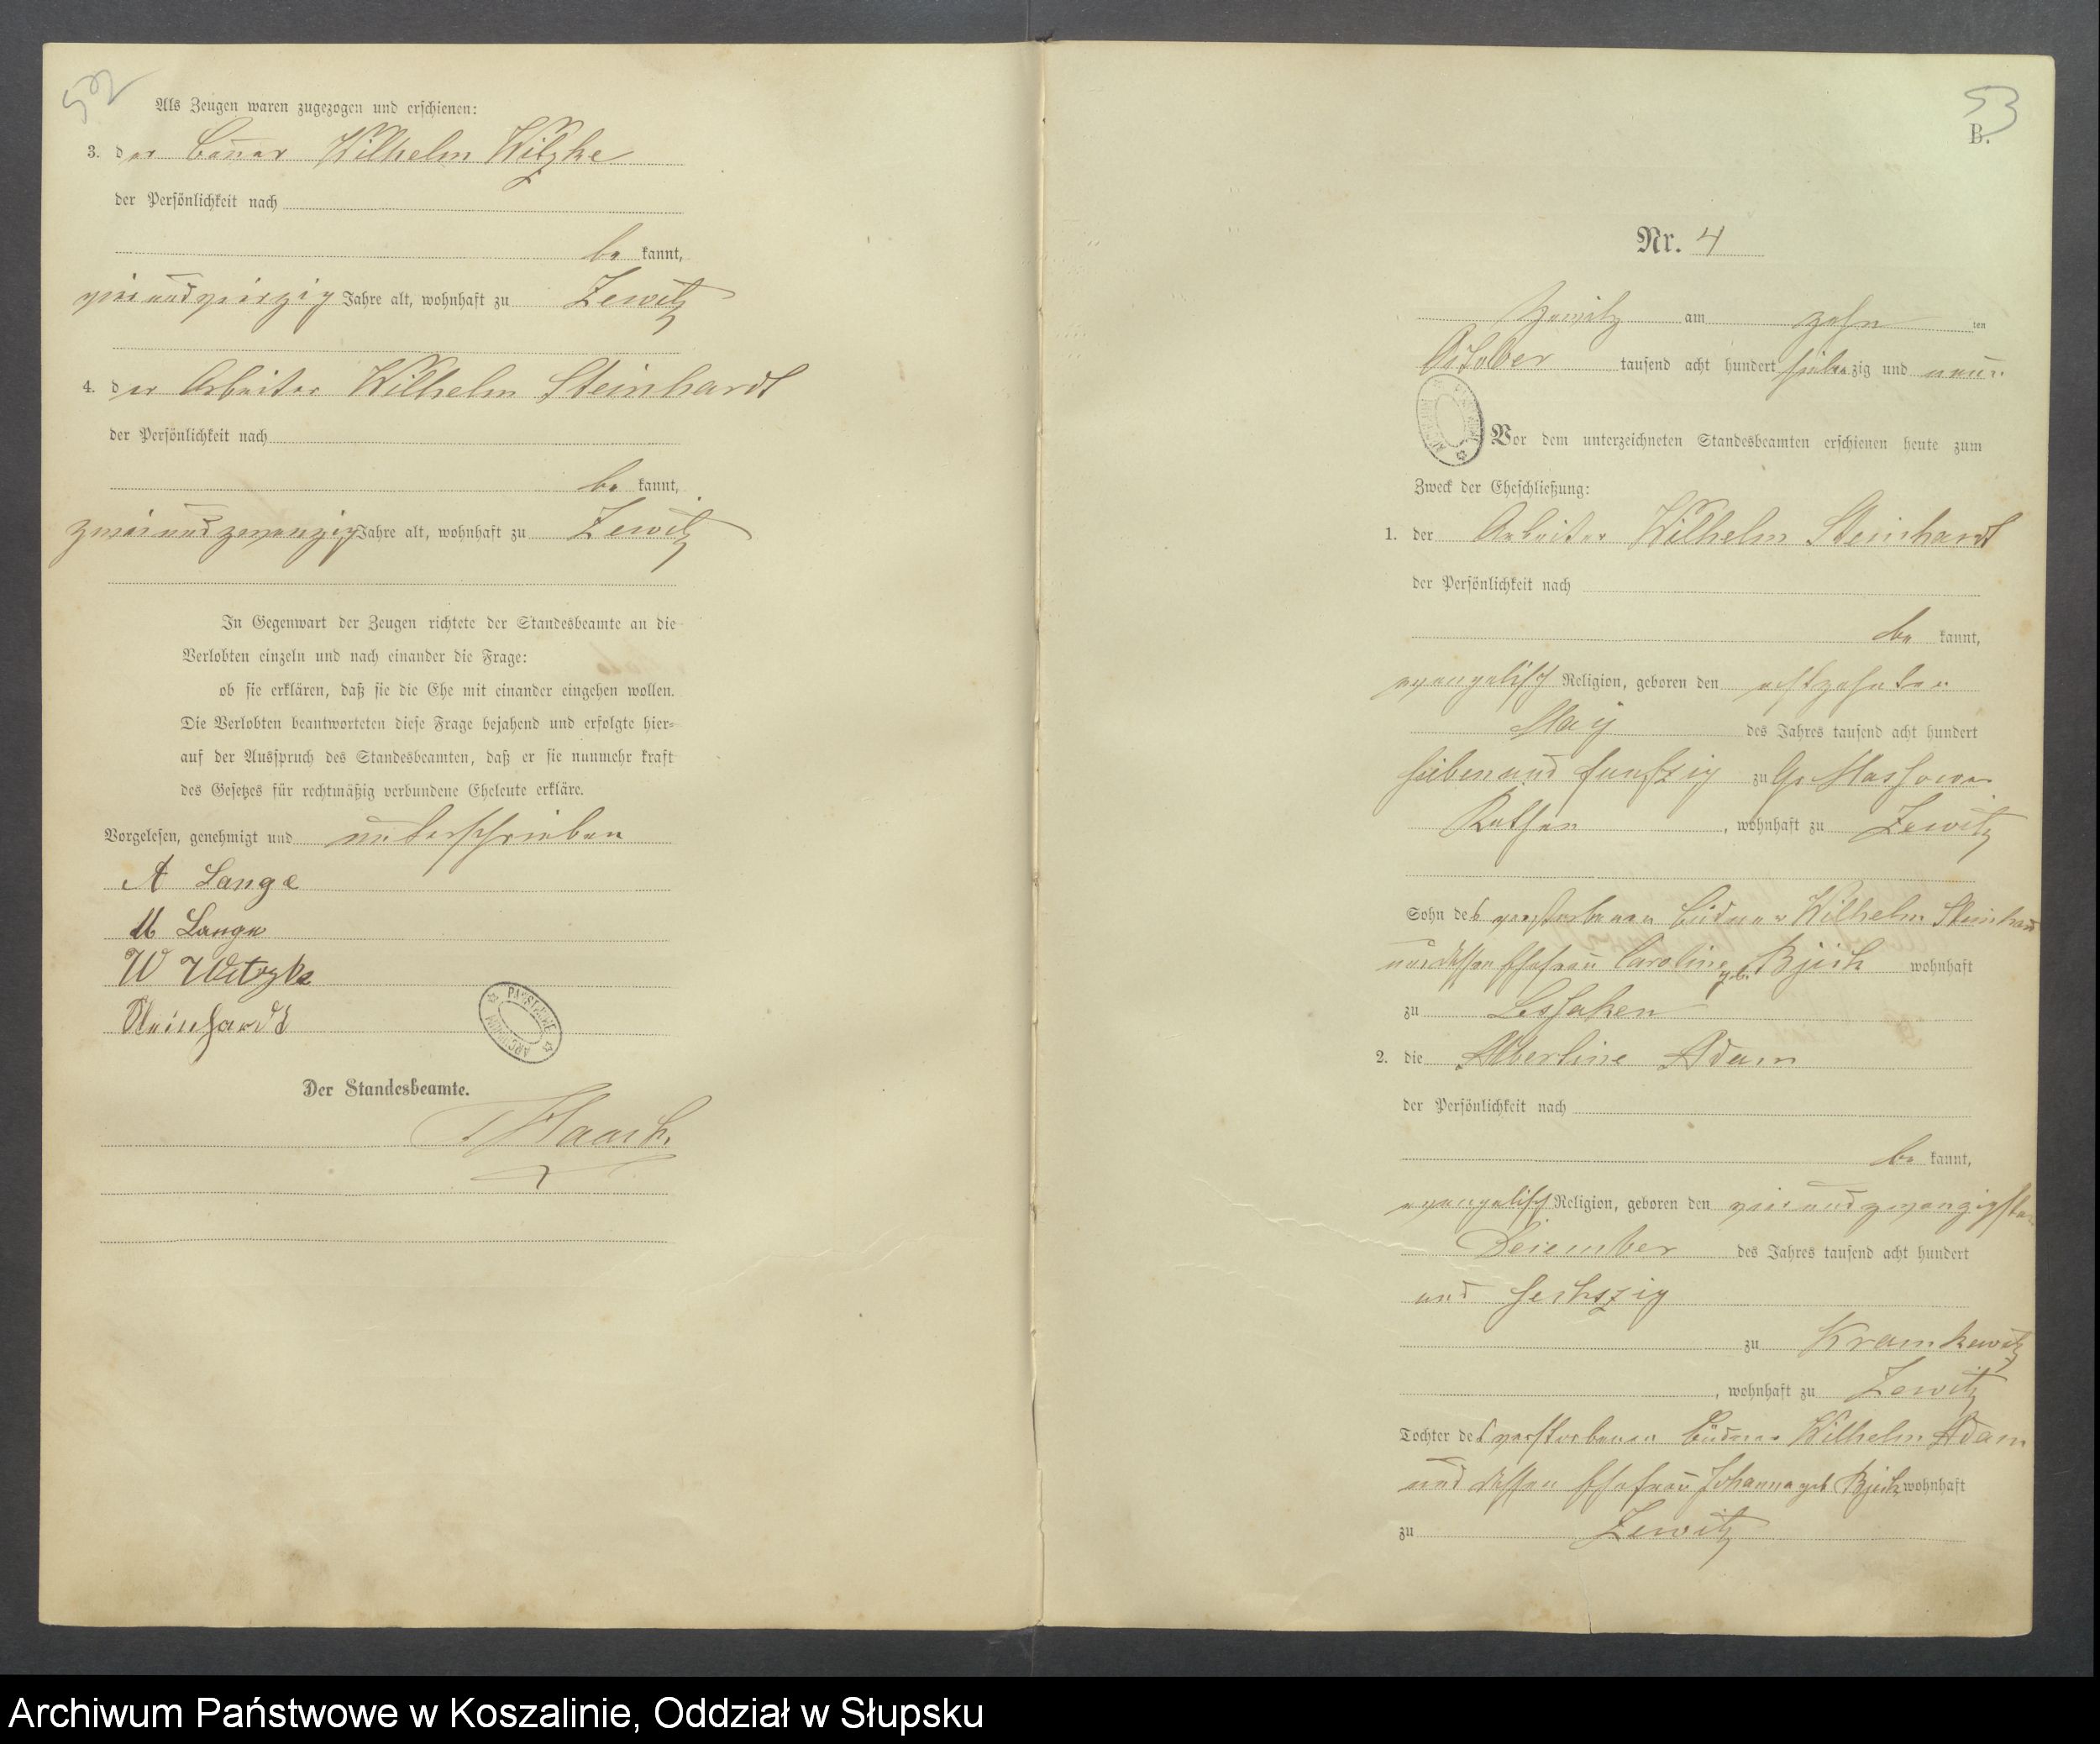 52
Als Zeugen waren zugezogen und erschienen:
3. der Bauer Wilhelm Witzke
der Persönlichkeit nach
be kannt,
vierundvierzig Jahre alt, wohnhaft zu Zewitz
4. der Arbeiter Wilhelm Steinhardt
der Persönlichkeit nach
be kannt,
zweiundzwanzig Jahre alt, wohnhaft zu Zewitz
In Gegenwart der Zeugen richtete der Standesbeamte an die
Verlobten einzeln und nach einander die Frage:
ob sie erklären, daß sie die Ehe mit einander eingehen wollen.
Die Verlobten beantworteten diese Frage bejahend und erfolgte hier-
auf der Ausspruch des Standesbeamten, daß er sie nunmehr kraft
des Gesetzes für rechtmäßig verbundene Eheleute erkläre.
Vorgelesen, genehmigt und unterschrieben
A Lange
M Lange
W Witzke
Steinhardt
Der Standesbeamte.
Haack.
53
B.
Nr. 4
Zewitz am zehn ten
October tausend acht hundert sieben zig und neun
Vor dem unterzeichneten Standesbeamten erschienen heute zum
Zweck der Eheschließung:
1. der Arbeiter Wilhelm Steinhardt
der Persönlichkeit nach
be kannt,
evangelisch Religion, geboren den achtzehnten
May des Jahres tausend acht hundert
sieben und funfzig zu Gr Massower
Kathen, wohnhaft zu Zewitz
Sohn des verstorbenen Büdner Wilhelm Steinhard
und dessen Ehefrau Caroline geb. wohnhaft
zu Lessaken
2. die Albertine Adam
der Persönlichkeit nach
be kannt,
evangelisch Religion, geboren den vierundzwanzigsten
Dezember des Jahres tausend acht hundert
und sechszig
zu Kramkewitz
, wohnhaft zu Zewitz
Tochter des verstorbenen Büdner Wilhelm Adam
und dessen Ehefrau Johanna geb wohnhaft
zu Zewitz
Archiwum Państwowe w Koszalinie, Oddział w Słupsku